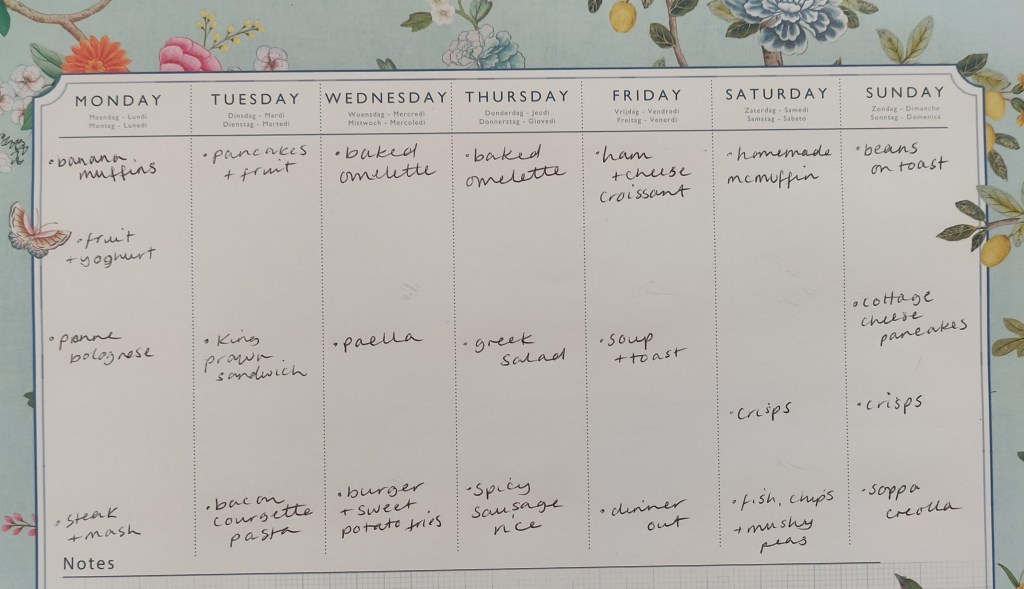 MONDAY
Maandag - Lundi
Montag - Lunedi
• banana
muffins
• fruit
+ yoghurt
• penne
bolognese
• steak
+ mash
TUESDAY
Dinsdag - Mardi
Dienstag - Martedi
• pancakes
+ fruit
• King
prawn
sandwich
• bacon
courgette
pasta
WEDNESDAY
Woensdag - Mercredi
Mittwoch - Mercoledi
• baked
omelette
• paella
• burger
+ sweet
potato fries
THURSDAY
Donderdag - Jeudi
Donnerstag - Giovedi
• baked
omelette
• greek
salad
• Spicy
sausage
rice
FRIDAY
Vrijdag - Vendredi
Freitag - Venerdi
• ham
+ cheese
croissant
• soup
+ toast
• dinner
out
SATURDAY
Zaterdag - Samedi
Samstag - Sabato
• homemade
mcmuffin
• crisps
• fish, chips
+ mushy
peas
SUNDAY
Zondag - Dimanche
Sonntag - Domenica
• beans
on toast
• cottage
cheese
pancakes
• crisps
• soppa
creolla
Notes